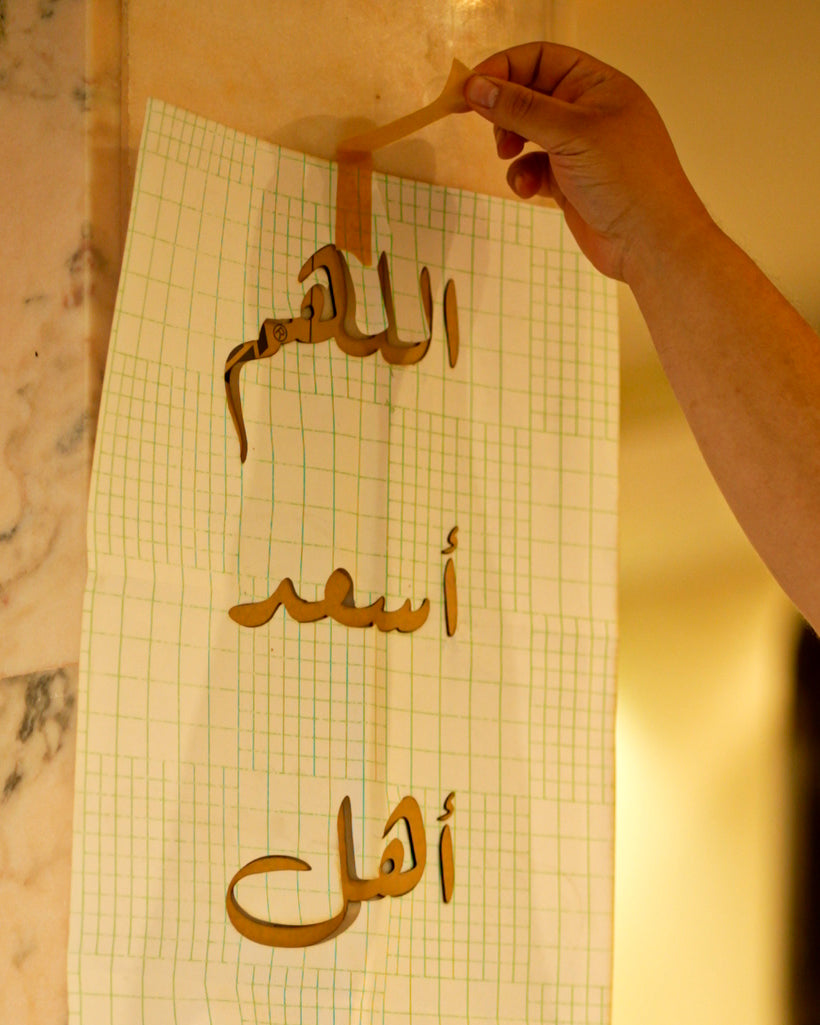 اللهم
أسعد
أهل